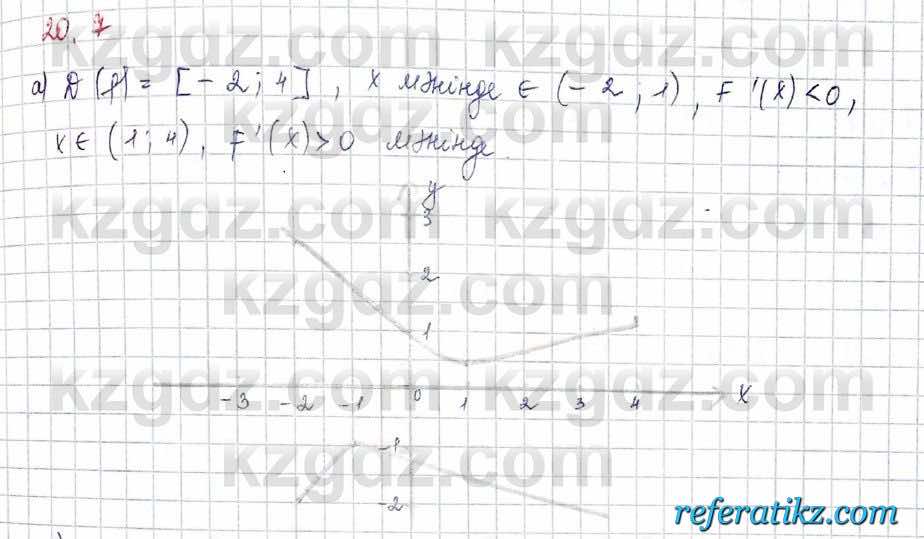 20.7
а) D(f) = [-2; 4], x мәнінде ∈ (-2, 1), F'(x)<0,
x∈ (1; 4), F'(x)>0 мәнінде.
y
3
2
1
-3 -2 -1 0 1 2 3 4 X
-1
-2
kzgdz.com kzgdz.com
kzgdz.com kzgdz.com
kzgdz.com kzgdz.com
kzgdz.com
kzgdz.com kzgdz.com
kzgdz.com
referatikz.com